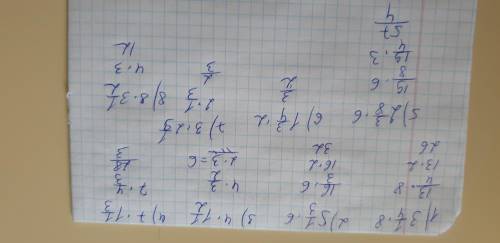 1) 3 1/4 · 8   2) 5 1/3 · 6   3) 4 · 1 1/2   4) 7 · 1 1/3
13/4 · 8   16/3 · 6   4 · 3/2   7 · 4/3
13 · 2   16 · 2   2 · 3 = 6   28/3
26   32
5) 2 3/8 · 6   8) 8 · 3 1/2
19/8 · 6   2 · 1/3   4 · 3
19/4 · 3   12
57/4